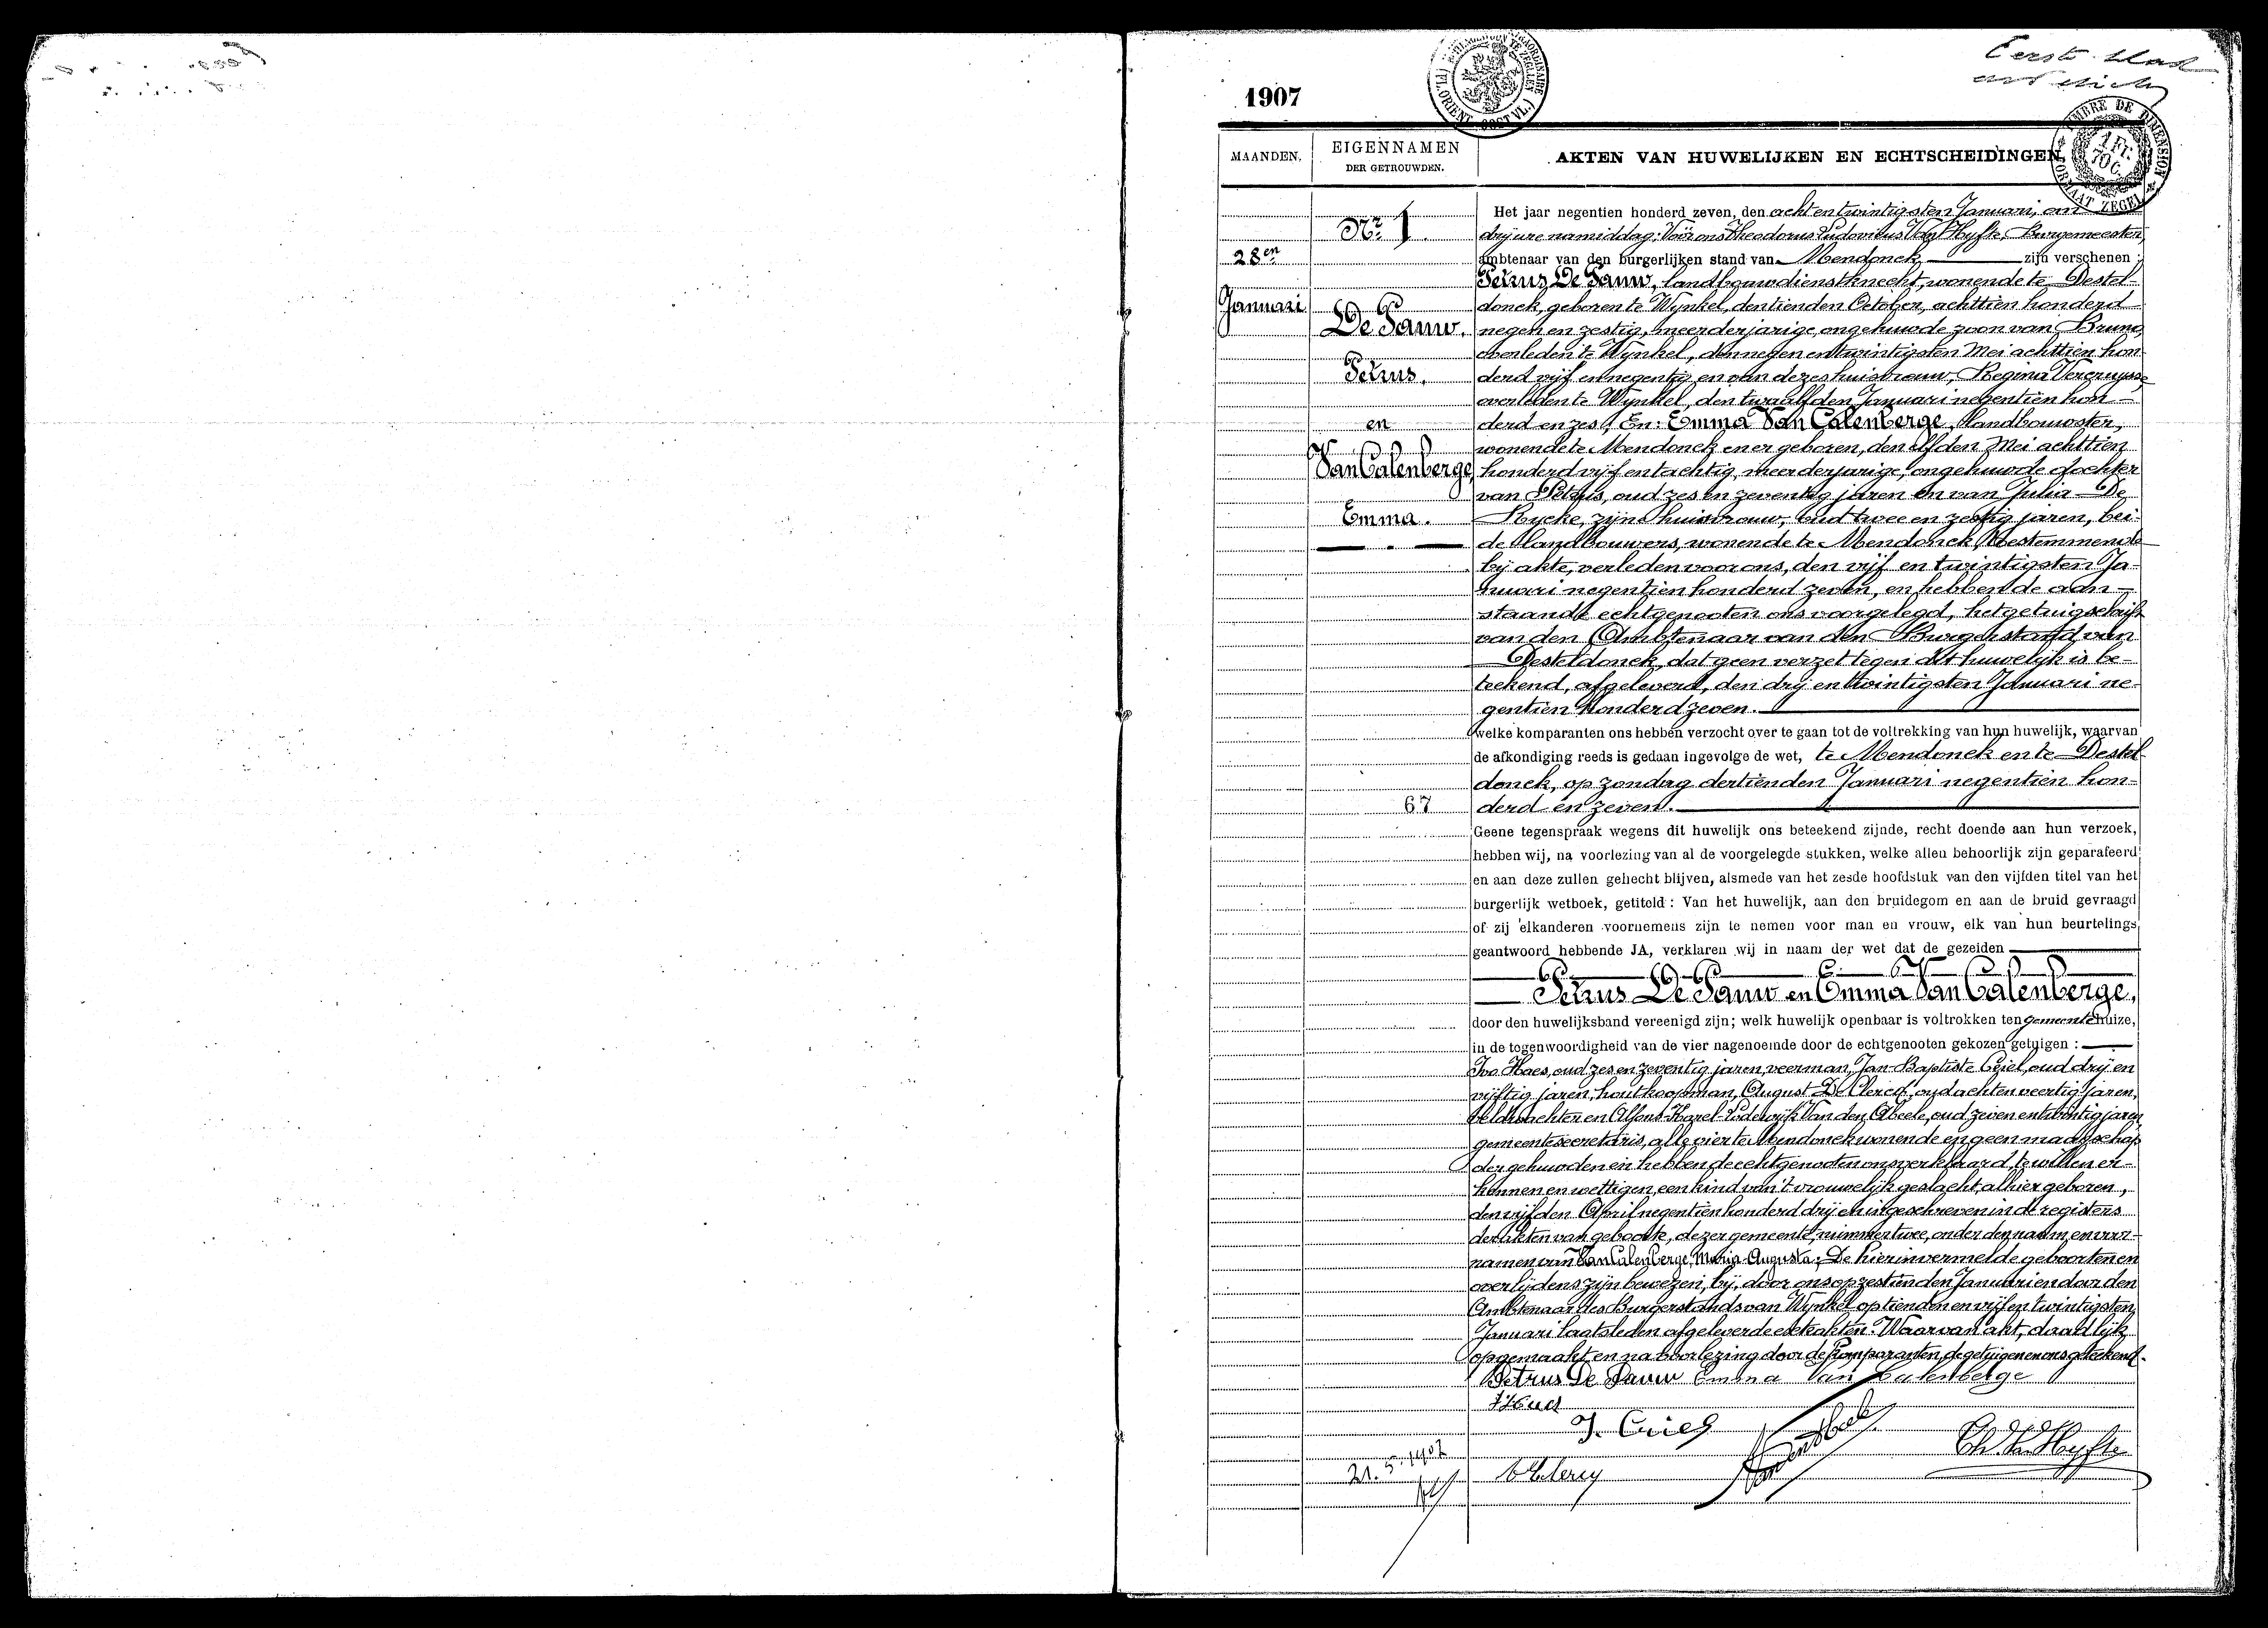 Eerste blad
1907
MAANDEN.
EIGENNAMEN
DER GETROUWDEN.
AKTEN VAN HUWELIJKEN EN ECHTSCHEIDINGEN.
TIMBRE DE DIMENSION
FORMAAT ZEGEL
1 Fr.
70 C.
Nr. 1.
28en
Januari
De Pauw.
Petrus.
en
Van Calenberge,
Emma.
Het jaar negentien honderd zeven, den acht en twintigsten Januari, om
drij ure namiddag: Vóór ons Theodorus Ludovicus Van Hyfte, Burgemeester,
ambtenaar van den burgerlijken stand van Mendonck zijn verschenen :
Petrus De Pauw, landbouwdienstknecht, wonende te Destel-
donck, geboren te Wynkel, den tienden October, achttien honderd
negen en zestig, meerderjarige, ongehuwde zoon van Bruno,
overleden te Wynkel, den negen en twintigsten Mei achttien hon-
derd vijf en negentig en van dezes huisvrouw, Regina Vercruysse,
overleden te Wynkel, den twaalfden Januari negentien hon-
derd en zes; En: Emma Van Calenberge, landbouwster,
wonende te Mendonck en er geboren, den elfden Mei achttien
honderd vijf en tachtig, meerderjarige, ongehuwde dochter
van Petrus, oud zes en zeventig jaren en van Julia De
Rycke, zijne huisvrouw, oud twee en zestig jaren, bei-
de landbouwers, wonende te Mendonck, toestemmende
bij akte, verleden voor ons, den vijf en twintigsten Ja-
nuari negentien honderd zeven, en hebben de aan-
staande echtgenooten ons voorgelegd, het getuigschrift
van den Ambtenaar van den Burgerstand van
Desteldonck, dat geen verzet tegen dit huwelijk is be-
teekend, afgeleverd, den drij en twintigsten Januari ne-
gentien honderd zeven.
welke komparanten ons hebben verzocht over te gaan tot de voltrekking van hun huwelijk, waarvan
de afkondiging reeds is gedaan ingevolge de wet, te Mendonck en te Destel-
donck, op zondag dertienden Januari negentien hon-
67 derd en zeven.
Geene tegenspraak wegens dit huwelijk ons beteekend zijnde, recht doende aan hun verzoek,
hebben wij, na voorlezing van al de voorgelegde stukken, welke allen behoorlijk zijn geparafeerd
en aan deze zullen gehecht blijven, alsmede van het zesde hoofdstuk van den vijfden titel van het
burgerlijk wetboek, getiteld : Van het huwelijk, aan den bruidegom en aan de bruid gevraagd
of zij elkanderen voornemens zijn te nemen voor man en vrouw, elk van hun beurtelings
geantwoord hebbende JA, verklaren wij in naam der wet dat de gezeiden
Petrus De Pauw en Emma Van Calenberge,
door den huwelijksband vereenigd zijn; welk huwelijk openbaar is voltrokken ten gemeentehuize,
in de tegenwoordigheid van de vier nagenoemde door de echtgenooten gekozen getuigen :
Ivo Haes, oud zes en zeventig jaren, veerman, Jan-Baptiste Criel, oud drij en
vijftig jaren, houtkoopman, August De Clercq, oud acht en veertig jaren,
veldwachter en Alfons-Karel-Lodewijk Van den Abeele, oud zeven en twintig jaren,
gemeentesecretaris, alle vier te Mendonck wonende en geen maagschap
der gehuwden en hebben de echtgenooten ons verklaard te willen er-
kennen en wettigen een kind van 't vrouwelijk geslacht, alhier geboren,
den vijfden April negentien honderd drij en ingeschreven in de registers
der akten van geboorte, dezer gemeente, nummer twee, onder den naam en voor-
namen van Van Calenberge, Maria-Augusta; De hierin vermelde geboorten en
overlijdens zijn bewezen, bij, door ons op zestienden Januari en door den
Ambtenaar des Burgerstands van Wynkel op tienden en vijf en twintigsten
Januari laatsleden afgeleverde extrakten. Waarvan akt, daadlijk
opgemaakt en na voorlezing door de komparanten, de getuigen en ons geteekend.
Petrus De Pauw Emma Van Calenberge
J. Criel
Vanden Abeele
Th. Van Hyfte
21. 5. 1907